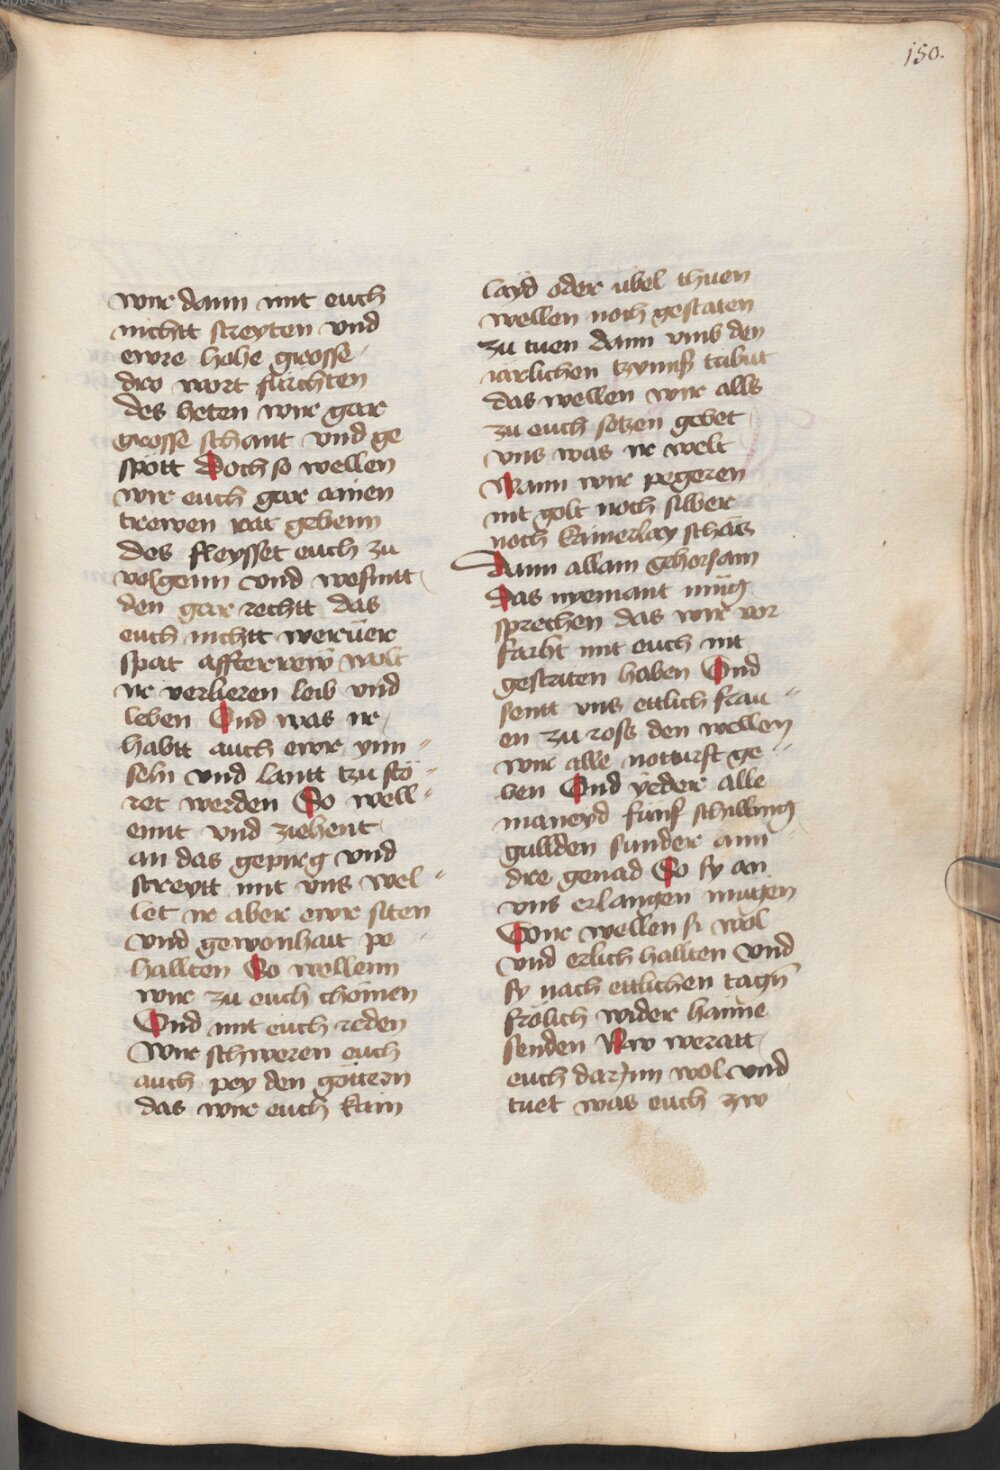 150.
wir dann mit euch
nichtt streyten vnd
ewre hohe grosse
dro wort furchten
des heten wir gar
grosse schant vnd ge
spött Doch so wellen
wir euch gar ainen
trewen rat gebenn
des fleysset euch zu
volgenn vnd
den gar rechtt das
euch nichtt
spat affterrew wolt
ir verlieren leib vnd
leben Vnd was ir
habtt auch ewr ynn
seln vnd lantt tzu stö
ret werden So well
ennt vnd ziehent
an das gepirg vnd
streytt mit vns wel
let ir aber ewr siten
vnd gewonhait pe
hallten So wellenn
wir zu euch chömen
Vnd mit euch reden
Wir schweren euch
auch pey den göttern
das wir euch kain
layd oder übel thuen
wellen noch gestaten
zu tuen dann vmb den
iärlichen tzynnß tribut
das wellen wir alls
zu euch setzen gebet
vns was ir welt
Wann wir pegeren
nit golt noch silber
noch kamerlay schätz
Dann allain gehorsam
Das nyemant müg
sprechen das wir vor
farht mit euch nit
gestriten haben Vnd
sentt vns ettlich frau
en zu ross den wellen
wir alle notturft ge
ben Vnd yeder alle
maneyd fünf schilling
gullden sunder ann
dre genad So sy an
vns erlangen mügen
Wir wellen si wol
vnd erlich hallten Vnd
sy nach ettlichen tagn
frölich wider haime
senden Nw weratt
euch darjnn wol vnd
tuet was euch zw